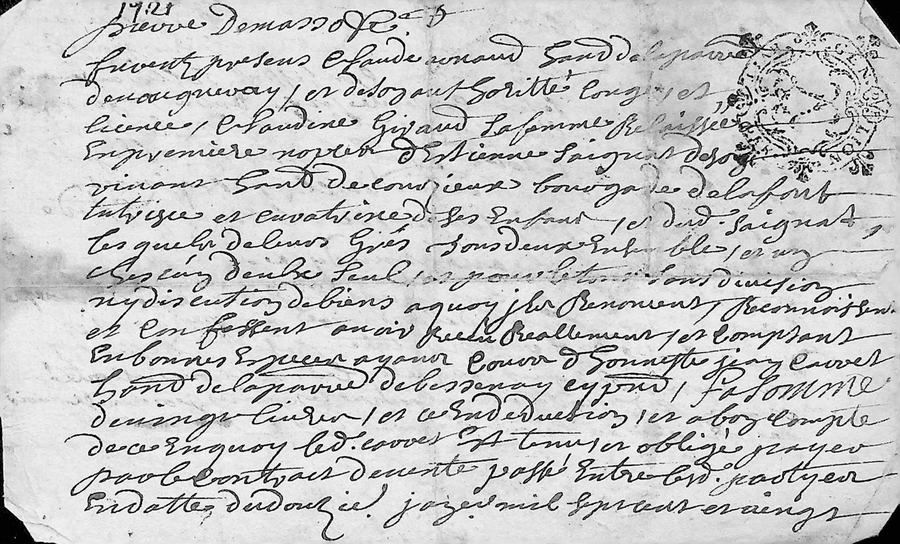 1721
pierre Demasso
furent presens Claude hand de la parr
de et de Soy autorisée Conge, et
licence, Claudine Giraud Sa femme Relaissée
En premiere nopces d'Estienne Saignat de Son
vivant hand de bourgade de lafont
tutrice et curatrice de Ses Enfans, et dud. Saignat,
lesquels de leurs Grés tous deux Ensemble, et un
Chescun deulx Seul, et pour le tout Sans division
ny discution de biens a quoy ils Renoncent, Reconnoissen
et Confessent avoir Receu Reallement, et Comptant
En bonnes Especes ayants Cours d'honneste jean Cavvet
hand de la parre de bessenay cy pnt, la Somme
de vingt livres, et ce En deduction, et a bon Compte
de ce En quoy led. Cavvet Est tenu, et obligé payer
par le Contract de vente passé Entre lesd. partyes
En datte du douzie. mil Sept cent et vingt
GEN LION